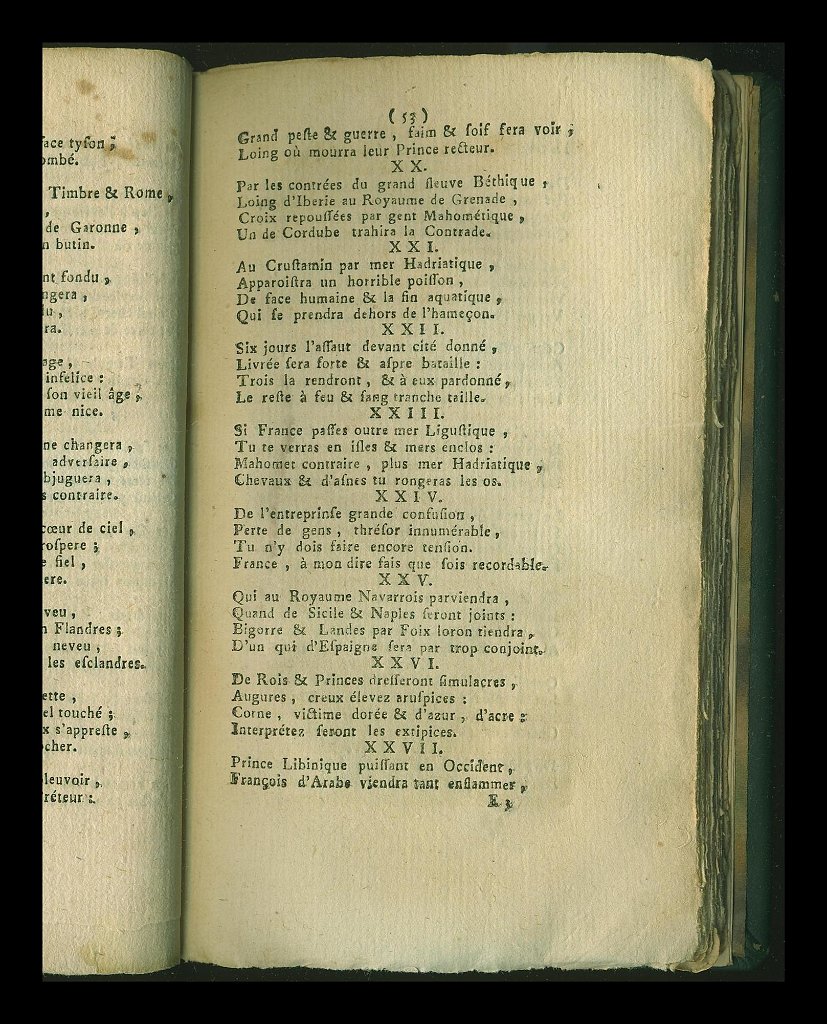 ace tyſon ;
ombé.
Timbre & Rome,
,
de Garonne,
n butin.
nt fondu,
ngera,
u,
ra.
age,
infelice :
ſon vieil âge,
me nice.
ne changera,
adverſaire,
bjuguera,
s contraire.
cœur de ciel,
roſpere ;
e fiel,
ere.
veu,
n Flandres ;
neveu,
les eſclandres.
ette,
el touché ;
x s'appreſte,
cher.
leuvoir,
réteur :
( 53 )
Grand peſte & guerre, faim & ſoif ſera voir ;
Loing où mourra leur Prince recteur.
X X.
Par les contrées du grand fleuve Béthique,
Loing d'Iberie au Royaume de Grenade,
Croix repouſſées par gent Mahométique,
Un de Cordube trahira la Contrade.
X X I.
Au Cruſtamin par mer Hadriatique,
Apparoiſtra un horrible poiſſon,
De face humaine & la fin aquatique,
Qui ſe prendra dehors de l'hameçon.
X X I I.
Six jours l'aſſaut devant cité donné,
Livrée ſera forte & aſpre bataille :
Trois la rendront, & à eux pardonné,
Le reſte à feu & ſang tranche taille.
X X I I I.
Si France paſſes outre mer Liguſtique,
Tu te verras en iſles & mers enclos :
Mahomet contraire, plus mer Hadriatique,
Chevaux & d'aſnes tu rongeras les os.
X X I V.
De l'entreprinſe grande confuſion,
Perte de gens, thréſor innumérable,
Tu n'y dois faire encore tenſion.
France, à mon dire fais que ſois recordable.
X X V.
Qui au Royaume Navarrois parviendra,
Quand de Sicile & Naples ſeront joints :
Bigorre & Landes par Foix loron tiendra,
D'un qui d'Eſpaigne ſera par trop conjoint.
X X V I.
De Rois & Princes dreſſeront ſimulacres,
Augures, creux élevez aruſpices :
Corne, victime dorée & d'azur, d'acre :
Interprétez ſeront les extipices.
X X V I I.
Prince Libinique puiſſant en Occident,
François d'Arabe viendra tant enflammer,
E 3